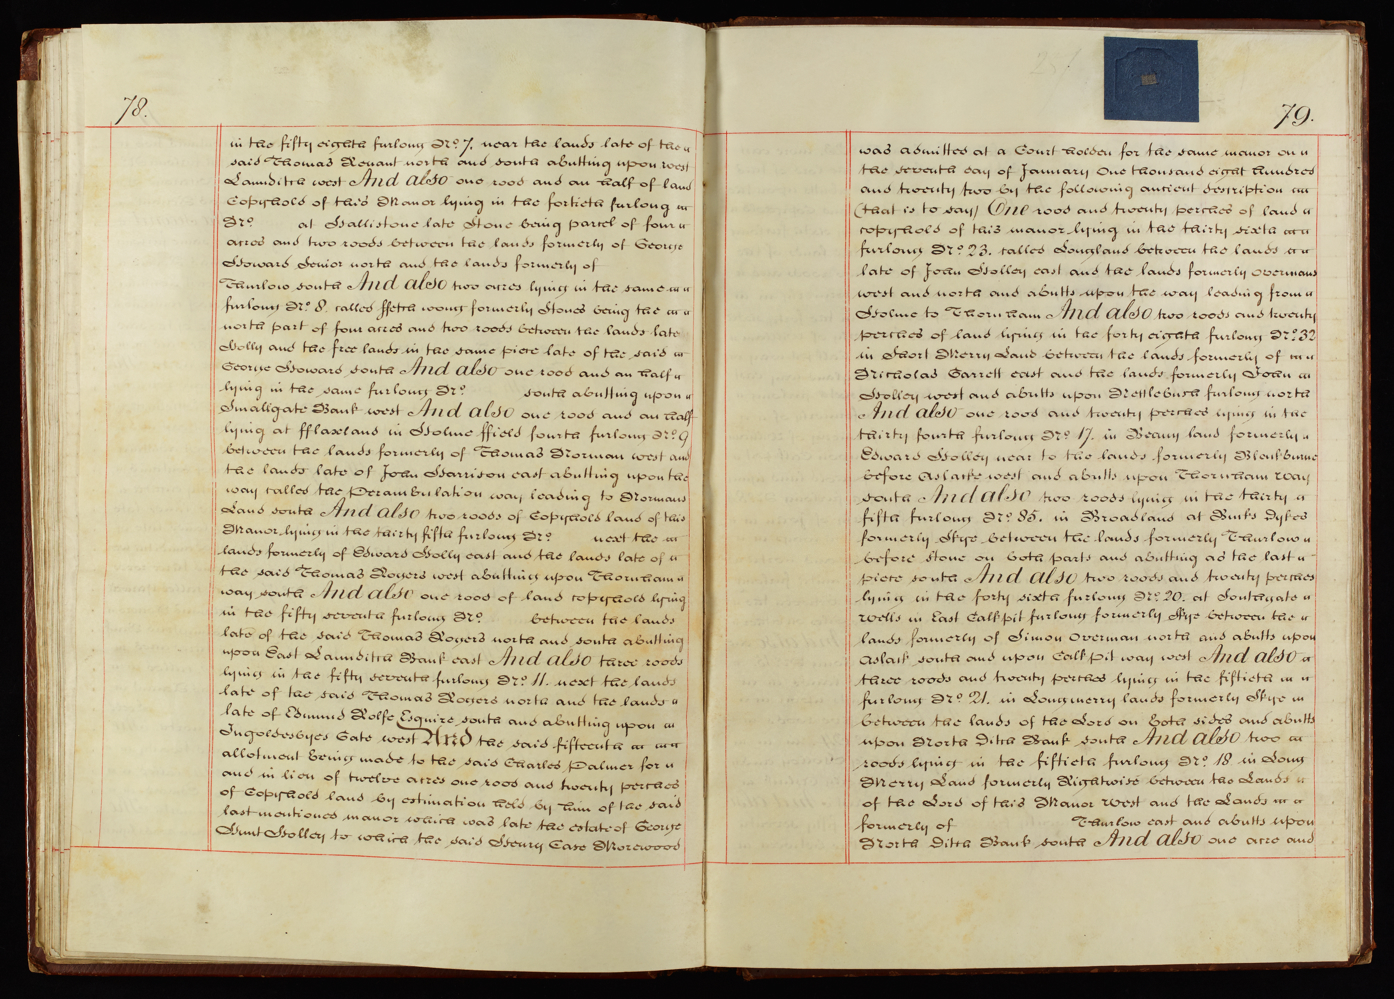 78.
in the fifty eighth furlong No. 7. near the lands late of the
said Thomas Revant north and south abutting upon west
Launditch west And also one rood and an half of land
Copyhold of this Manor lying in the fortieth furlong
No. at Hallistone late Stone being parcel of four
acres and two roods between the lands formerly of George
Howard Senior north and the lands formerly of
Thurlow south And also two acres lying in the same
furlong No. 8. called ffeth wong formerly Stones being the
north part of four acres and two roods between the lands late
Holly and the free lands in the same piece late of the said
George Howard south And also one rood and an half
lying in the same furlong No. south abutting upon
Smallgate Bank west And also one rood and an half
lying at fflaxland in Holme ffield fourth furlong No. 9
between the lands formerly of Thomas Norman west and
the lands late of John Harrison east abutting upon the
way called the Perambulation way leading to Normans
Land south And also two roods of Copyhold land of this
Manor lying in the thirty fifth furlong No. next the
lands formerly of Edward Holly east and the lands late of
the said Thomas Rogers west abutting upon Thornham
way south And also one rood of land copyhold lying
in the fifty seventh furlong No. between the lands
late of the said Thomas Rogers north and south abutting
upon East Launditch Bank east And also three roods
lying in the fifty seventh furlong No. 11. next the lands
late of the said Thomas Rogers north and the lands
late of Edmund Rolfe Esquire south and abutting upon
Ingoldesbyes Gate west And the said fifteenth
allotment being made to the said Charles Palmer for
and in lieu of twelve acres one rood and twenty perches
of Copyhold land by estimation held by him of the said
last mentioned manor which was late the estate of George
Hunt Holley to which the said Henry Case Morewood
79.
was admitted at a Court holden for the same manor on
the seventh day of January One thousand eight hundred
and twenty two by the following ancient description
(that is to say) One rood and twenty perches of land
copyhold of this manor lying in the thirty sixth
furlong No. 23. called Longland between the lands
late of John Holley east and the lands formerly overmans
west and north and abutts upon the way leading from
Holme to Thornham And also two roods and twenty
perches of land lying in the forty eighth furlong No. 32
in Short Merry Land between the lands formerly of
Nicholas Garrett east and the lands formerly John
Holley west and abutts upon Nettlebush furlong north
And also one rood and twenty perches lying in the
thirty fourth furlong No. 17. in Beany land formerly
Edward Holley near to the lands formerly Blenkburne
before Aslacke west and abutts upon Thornham way
south And also two roods lying in the thirty
fifth furlong No. 35. in Broadland at Binks Dykes
formerly Skye between the lands formerly Thurlow
before Stone on both parts and abutting as the last
piece south And also two roods and twenty perches
lying in the forty sixth furlong No. 20. at Southgate
wells in East Calkpit furlong formerly Skye between the
lands formerly of Simon Overman north and abutts upon
Aslack south and upon Calk Pit way west And also
three roods and twenty perches lying in the fiftieth
furlong No. 21. in Longmerry lands formerly Skye in
between the lands of the Lord on both sides and abutts
upon North Ditch Bank south And also two
roods lying in the fiftieth furlong No. 18 in Long
Merry Land formerly Rightwise between the Lands
of the Lord of this Manor West and the Lands
formerly of Thurlow east and abutts upon
North Ditch Bank south And also one acre and